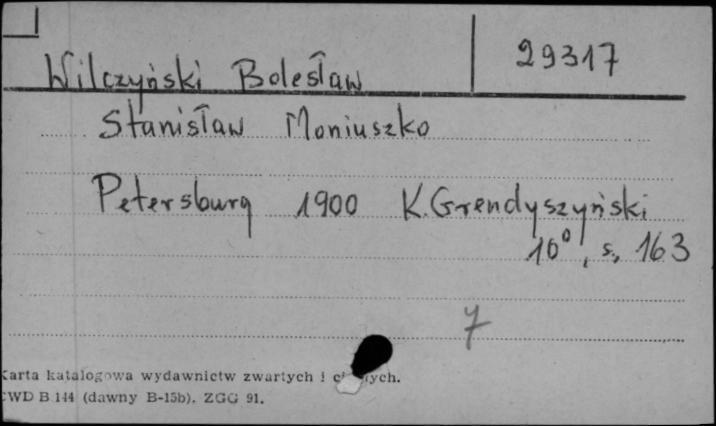 29317
Wilczyński Bolesław
Stanisław Moniuszko
Petersburg 1900 K. Grendyszyński
16°, s. 163
7
Karta katalogowa wydawnictw zwartych i
CWD B 144 (dawny B-15b). ZGG 91.